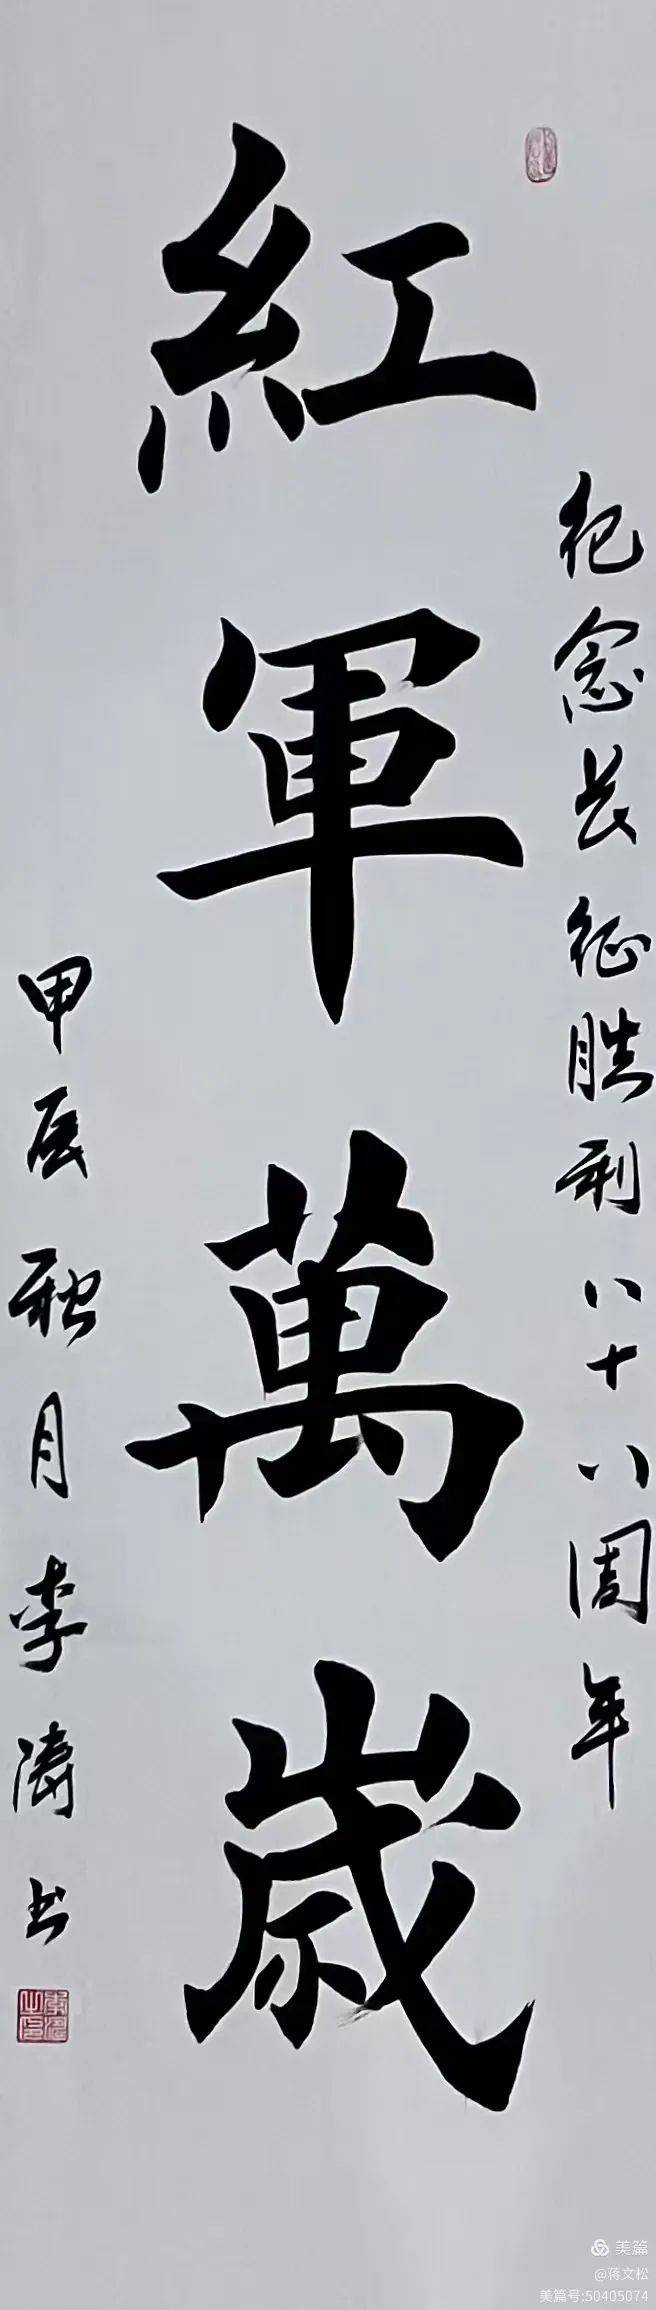 紀念长征胜利八十八周年
紅軍萬歲
甲辰秋月李濤书
美篇
@蒋文松
美篇号:50405074